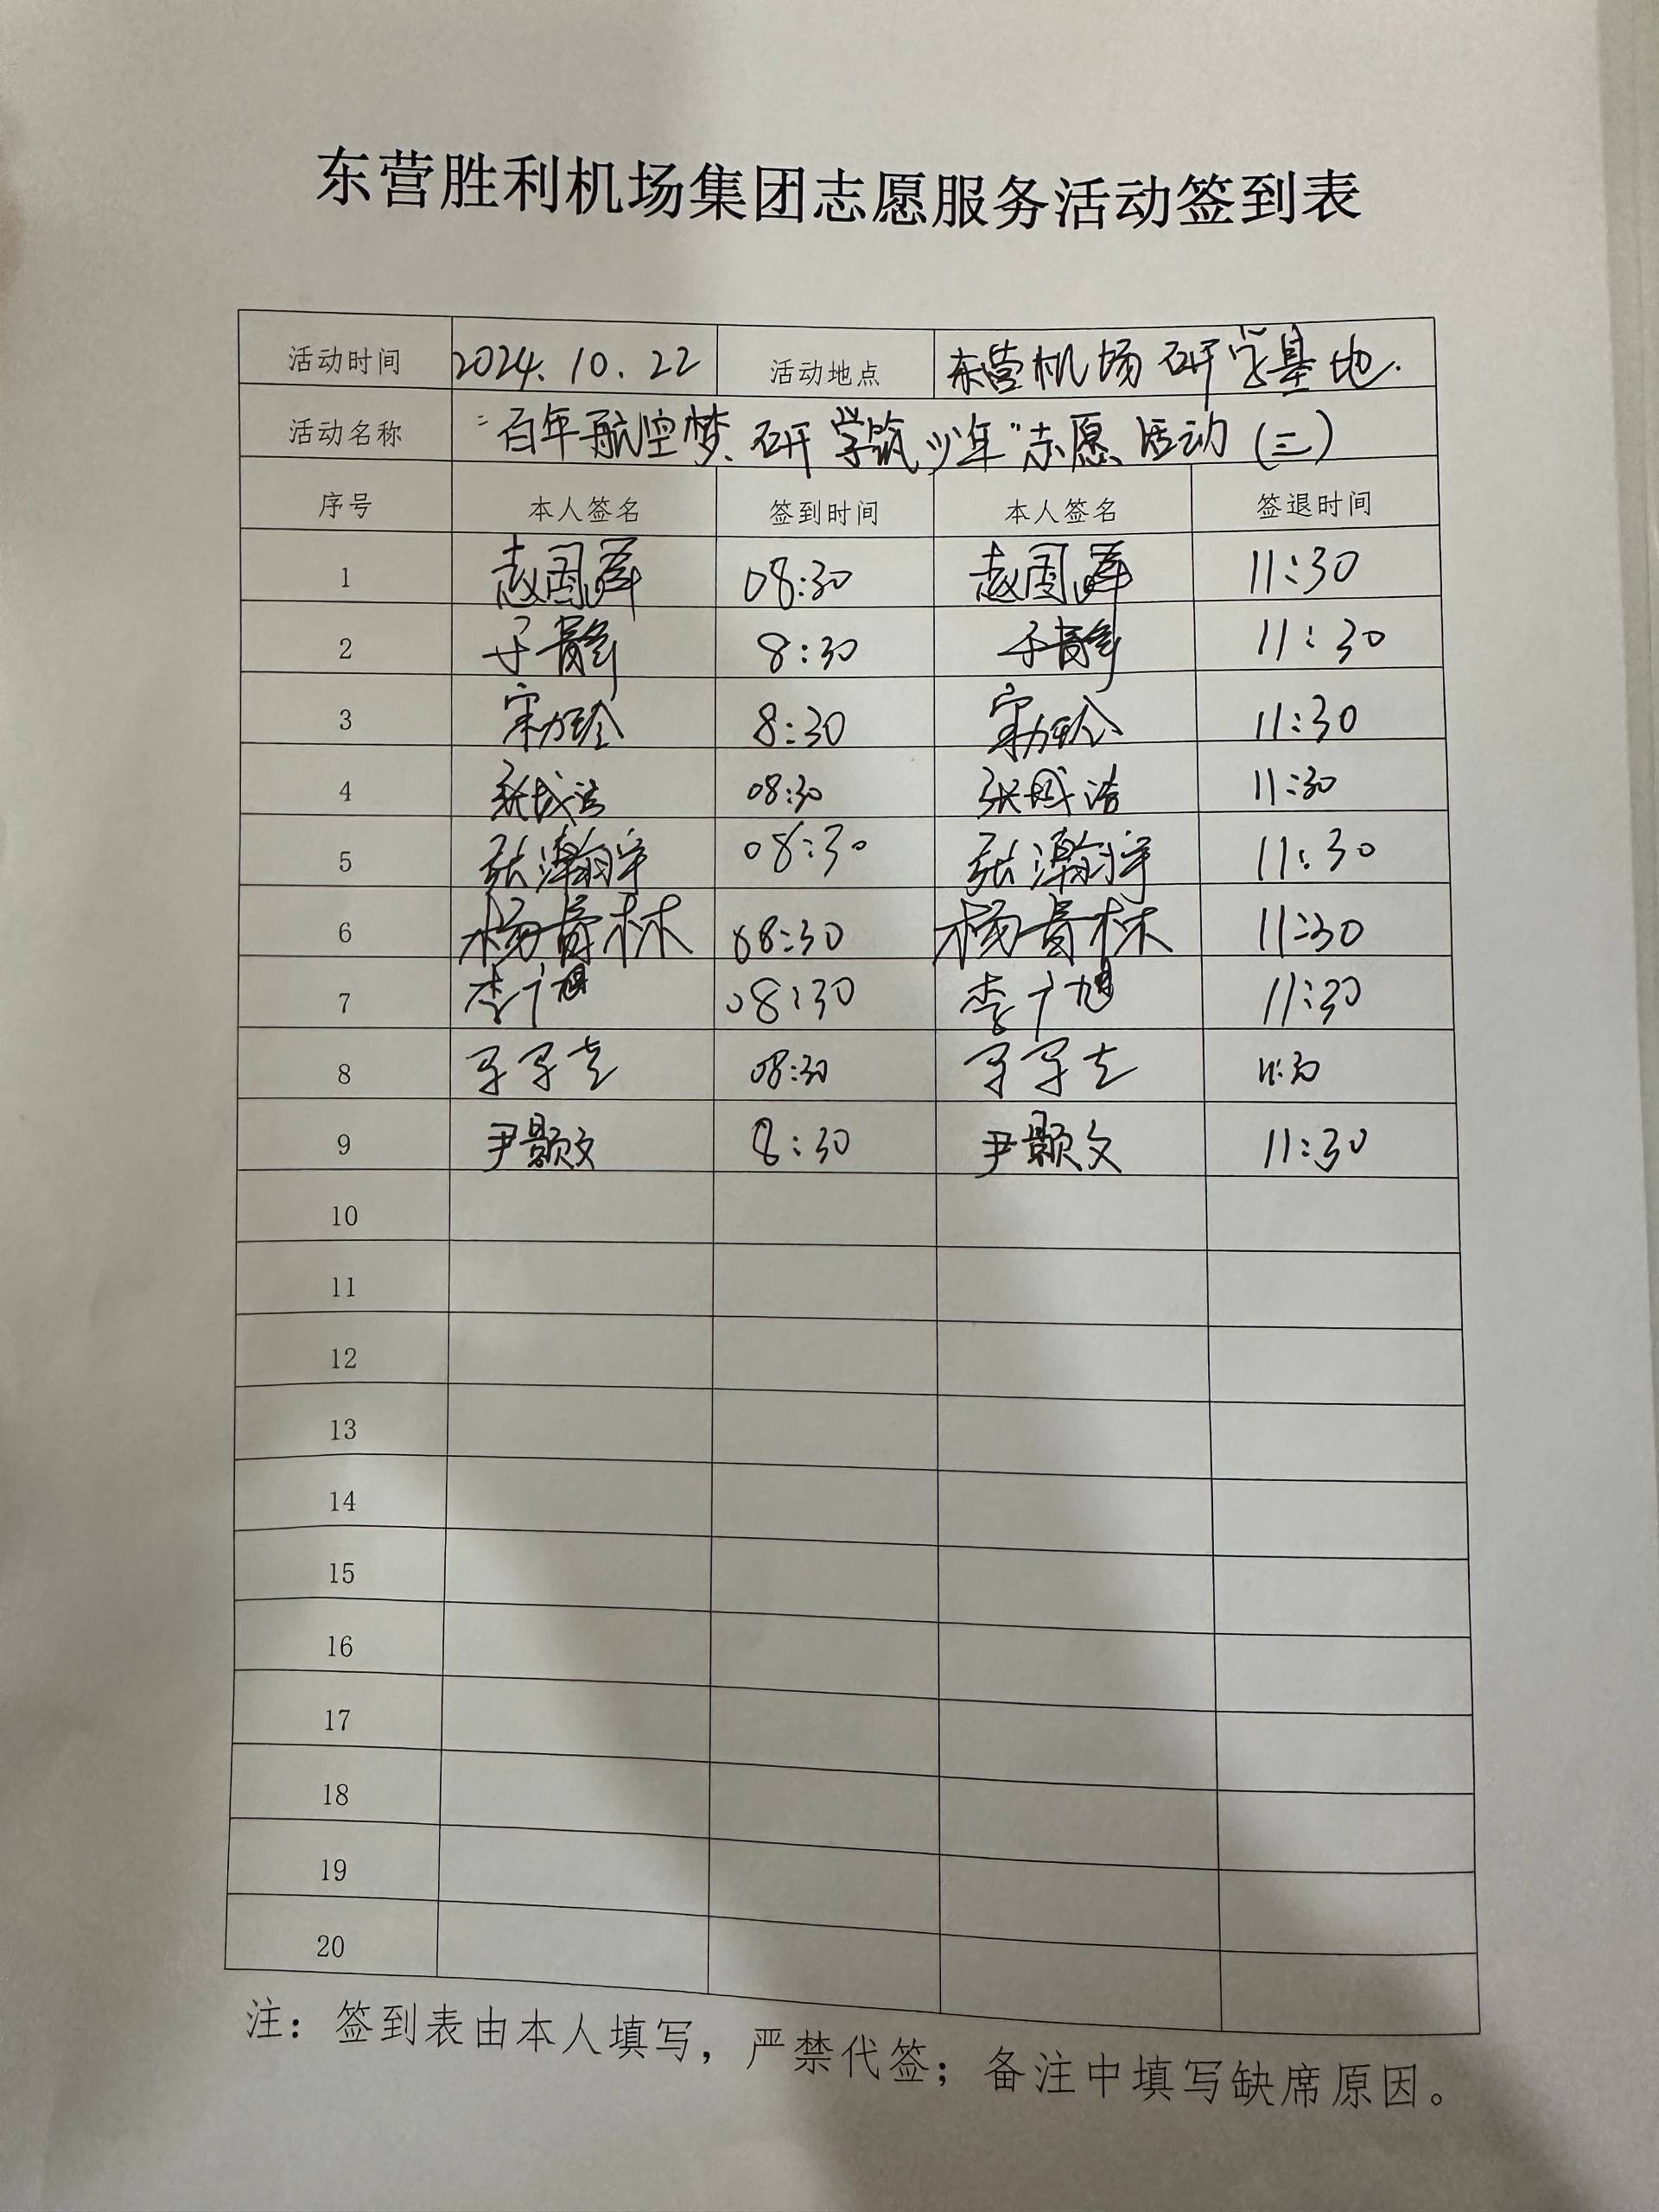 东营胜利机场集团志愿服务活动签到表
活动时间 2024.10.22 活动地点 东营机场研学基地.
活动名称 "百年航空梦、研学筑少年"志愿活动(三)
序号 本人签名 签到时间 本人签名 签退时间
1 赵国 08:30 赵国 11:30
2 于静 8:30 于静 11:30
3 宋 8:30 宋 11:30
4 张城浩 08:30 张城浩 11:30
5 张瀚宇 08:30 张瀚宇 11:30
6 杨育林 08:30 杨育林 11:30
7 李广旭 08:30 李广旭 11:30
8 08:30 11:30
9 尹颢文 8:30 尹颢文 11:30
10
11
12
13
14
15
16
17
18
19
20
注：签到表由本人填写，严禁代签；备注中填写缺席原因。